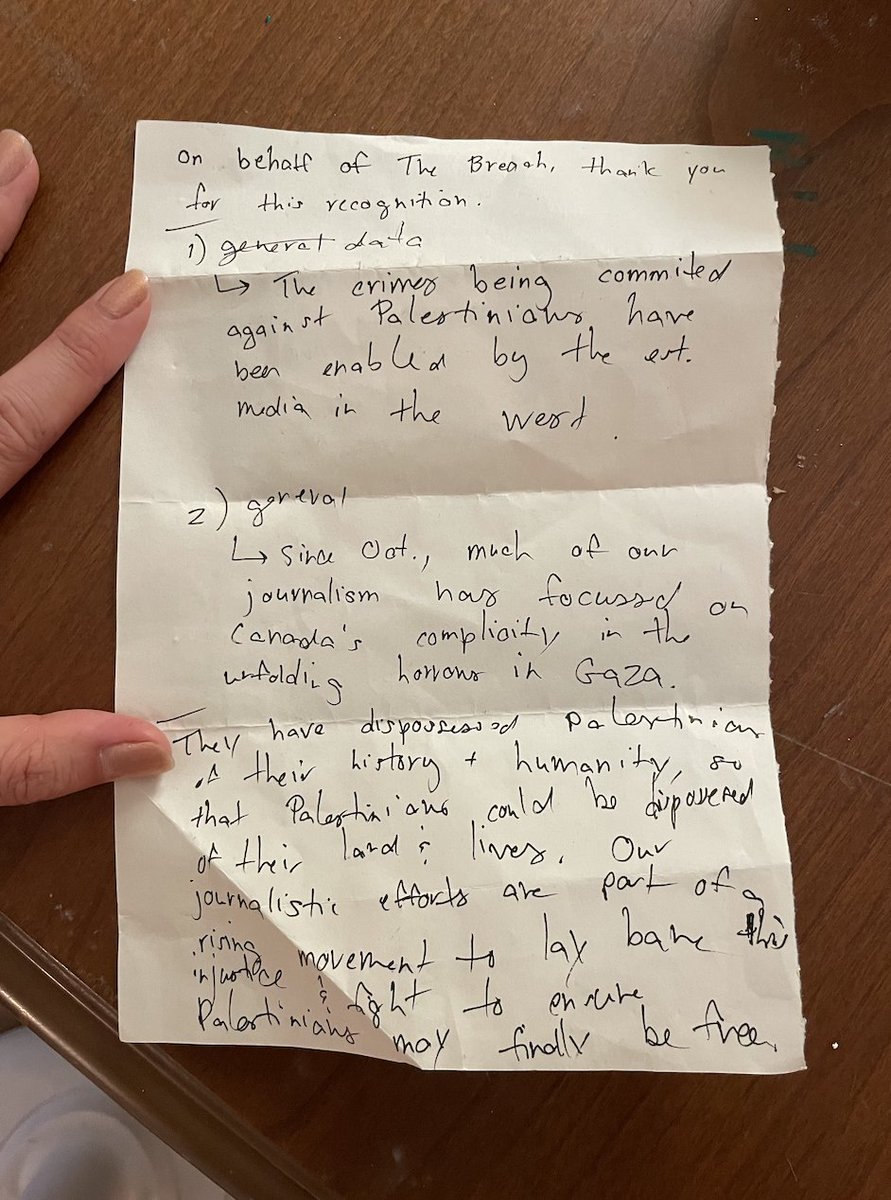 on behalf of The Breach, thank you
for this recognition.
1) general data
↳ The crimes being commited
against Palestinians have
been enabled by the est.
media in the west.
2) general
↳ Since Oct., much of our
journalism has focussed on
Canada's complicity in the
unfolding horrors in Gaza.
They have dispossessed Palestinians
of their history + humanity, so
that Palestinians could be dispossessed
of their land & lives. Our
journalistic efforts are part of a
rising movement to lay bare this
injustice & fight to ensure
Palestinians may finally be free.